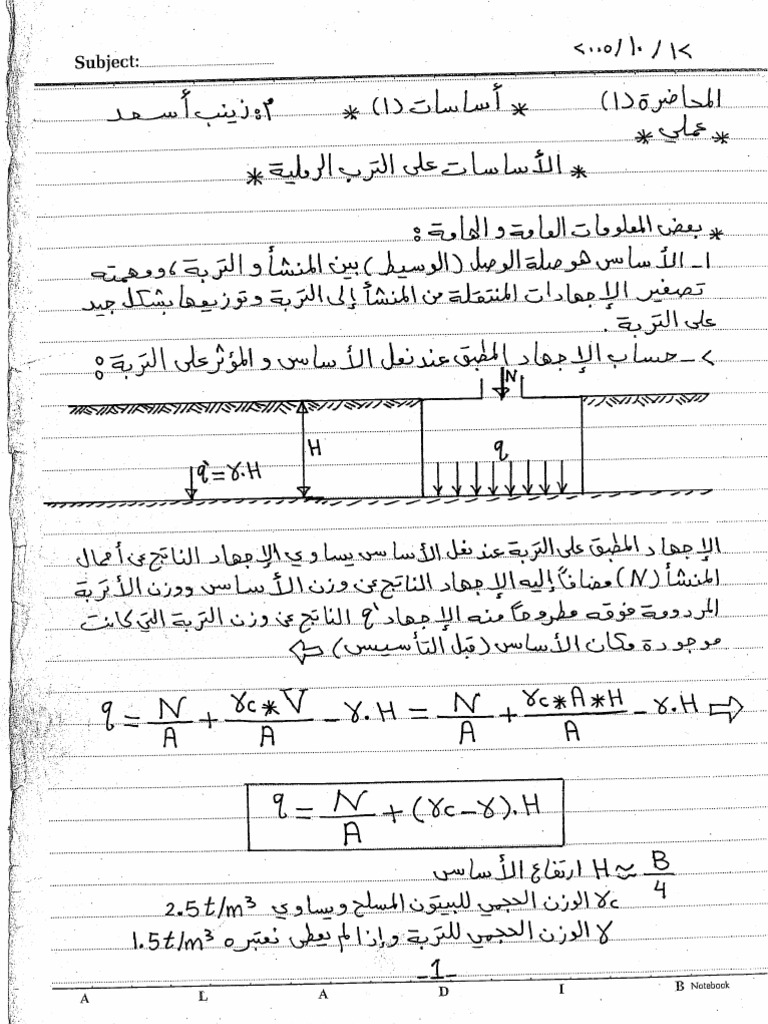 Subject:
٢٠٠٥/١٠/١٢
المحاضرة (١) * أساسات (١) * م: زينب أسعد
* عملي *
* الأساسات على الترب الرملية *
* بعض المعلومات العامة و الهامة :
١- الأساس هو صلة الوصل (الوسيط) بين المنشأ و التربة، ومهمته
تصغير الإجهادات المنتقلة من المنشأ إلى التربة وتوزيعها بشكل جيد
على التربة .
٢- حساب الإجهاد المطبق عند نعل الأساس و المؤثر على التربة :
N
H
q
q' = γ.H
الإجهاد المطبق على التربة عند نعل الأساس يساوي الإجهاد الناتج عن أحمال
المنشأ (N) مضافاً إليه الإجهاد الناتج عن وزن الأساس ووزن الأتربة
المردومة فوقه مطروحاً منه الإجهاد q' الناتج عن وزن التربة التي كانت
موجودة مكان الأساس (قبل التأسيس) ⇐
q = N/A + γc*V/A - γ.H = N/A + γc*A*H/A - γ.H ⇒
q = N/A + (γc-γ).H
H ≈ B/4 ارتفاع الأساس
γc الوزن الحجمي للبيتون المسلح ويساوي 2.5t/m³
γ الوزن الحجمي للتربة وإذا لم يعطى نعتبره 1.5t/m³
-1-
A L A D I B Notebook